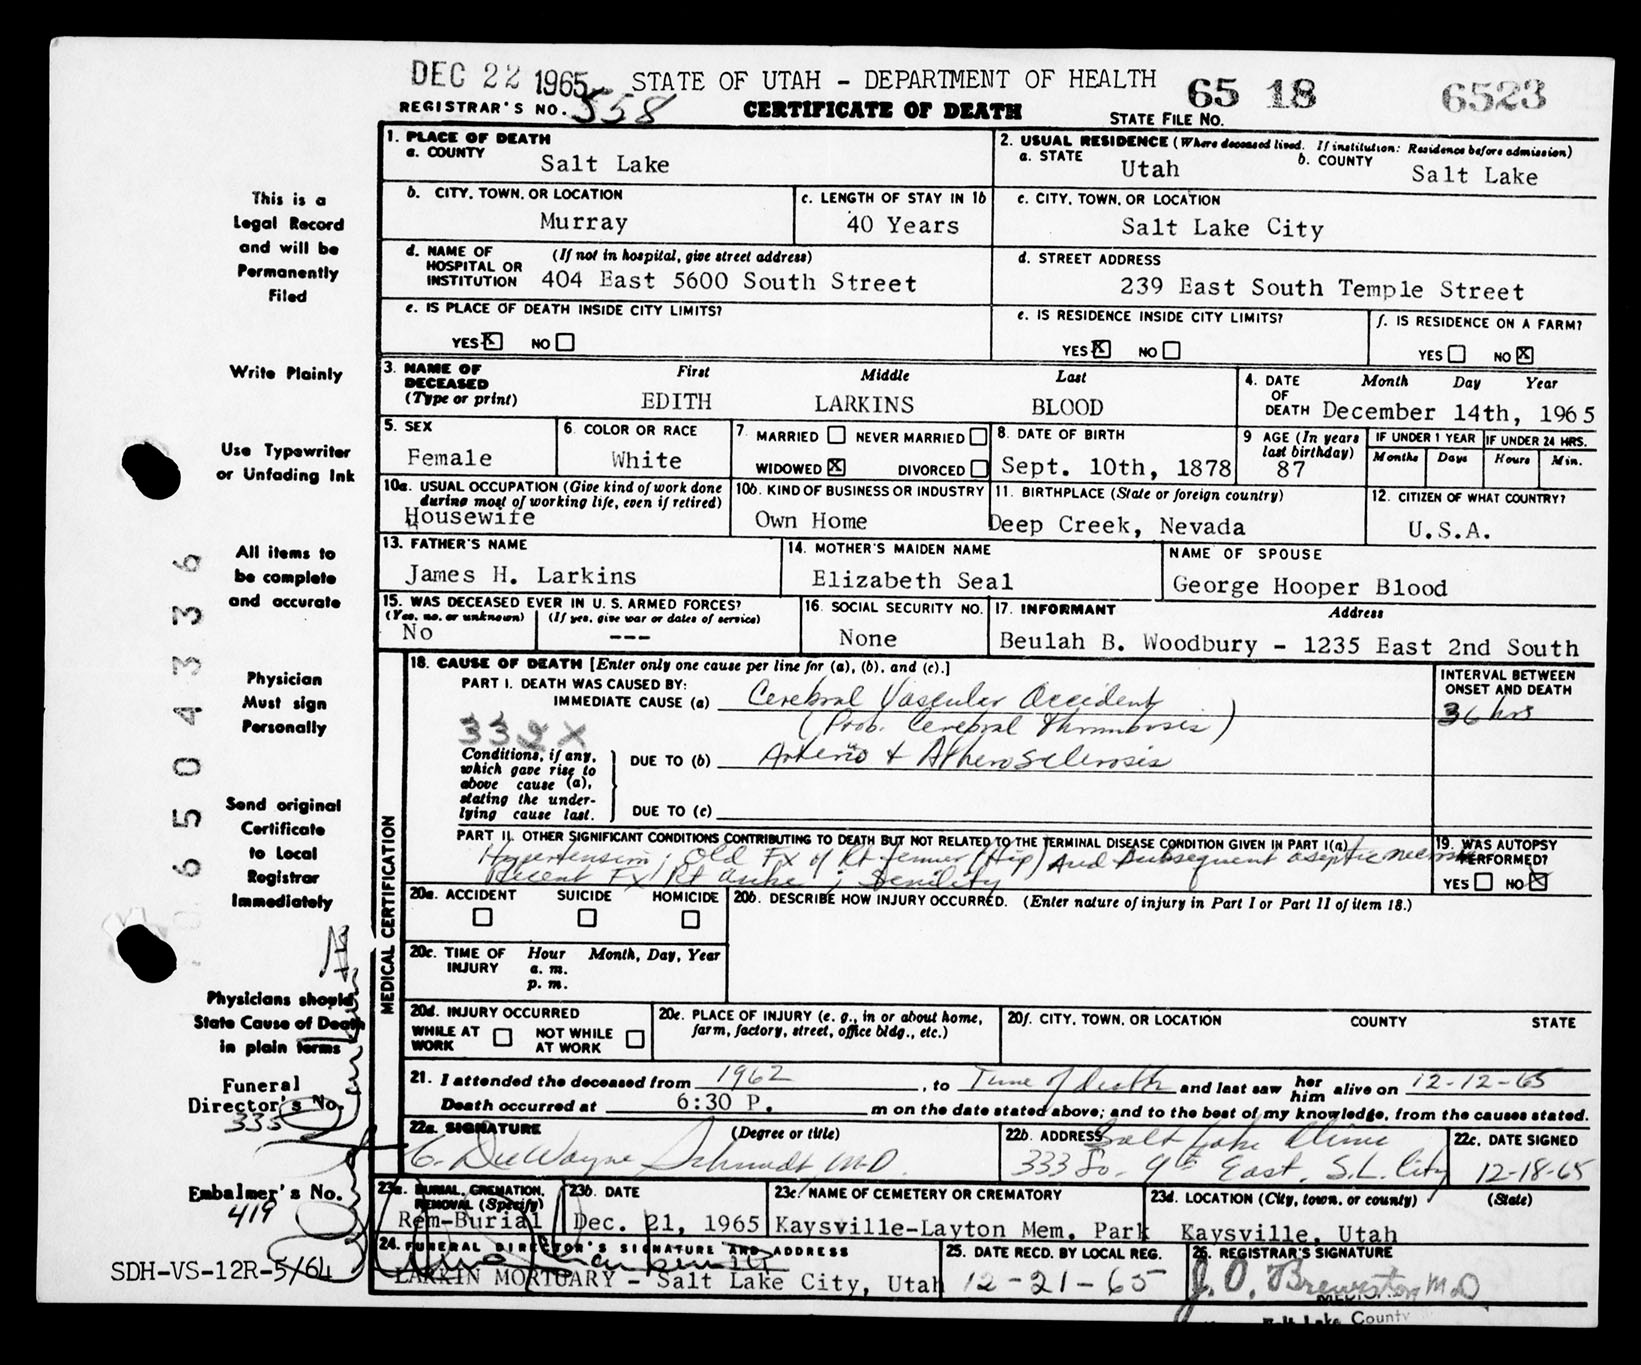 DEC 22 1965 STATE OF UTAH - DEPARTMENT OF HEALTH 65 18 6523
REGISTRAR'S NO. 558 CERTIFICATE OF DEATH STATE FILE NO.
This is a
Legal Record
and will be
Permanently
Filed
Write Plainly
Use Typewriter
or Unfading Ink
All items to
be complete
and accurate
Physician
Must sign
Personally
Send original
Certificate
to Local
Registrar
Immediately
Physicians should
State Cause of Death
in plain terms
Funeral
Director's No.
335
Embalmer's No.
419
SDH-VS-12R-5/64
6504336
1. PLACE OF DEATH
a. COUNTY Salt Lake
2. USUAL RESIDENCE (Where deceased lived. If institution: Residence before admission)
a. STATE Utah b. COUNTY Salt Lake
b. CITY, TOWN, OR LOCATION Murray
c. LENGTH OF STAY IN 1b 40 Years
c. CITY, TOWN, OR LOCATION Salt Lake City
d. NAME OF HOSPITAL OR INSTITUTION (If not in hospital, give street address)
404 East 5600 South Street
d. STREET ADDRESS
239 East South Temple Street
e. IS PLACE OF DEATH INSIDE CITY LIMITS?
YES X NO
e. IS RESIDENCE INSIDE CITY LIMITS?
YES X NO
f. IS RESIDENCE ON A FARM?
YES NO X
3. NAME OF DECEASED (Type or print) First Middle Last
EDITH LARKINS BLOOD
4. DATE OF DEATH Month Day Year
December 14th, 1965
5. SEX
Female
6. COLOR OR RACE
White
7. MARRIED NEVER MARRIED
WIDOWED X DIVORCED
8. DATE OF BIRTH
Sept. 10th, 1878
9 AGE (In years last birthday)
87
IF UNDER 1 YEAR IF UNDER 24 HRS.
Months Days Hours Min.
10a. USUAL OCCUPATION (Give kind of work done during most of working life, even if retired)
Housewife
10b. KIND OF BUSINESS OR INDUSTRY
Own Home
11. BIRTHPLACE (State or foreign country)
Deep Creek, Nevada
12. CITIZEN OF WHAT COUNTRY?
U.S.A.
13. FATHER'S NAME
James H. Larkins
14. MOTHER'S MAIDEN NAME
Elizabeth Seal
NAME OF SPOUSE
George Hooper Blood
15. WAS DECEASED EVER IN U. S. ARMED FORCES?
(Yes, no, or unknown) (If yes, give war or dates of service)
No ---
16. SOCIAL SECURITY NO.
None
17. INFORMANT Address
Beulah B. Woodbury - 1235 East 2nd South
MEDICAL CERTIFICATION
18. CAUSE OF DEATH [Enter only one cause per line for (a), (b), and (c).]
PART I. DEATH WAS CAUSED BY:
IMMEDIATE CAUSE (a) Cerebral Vascular Accident
(Prob. Cerebral thrombosis)
332X
INTERVAL BETWEEN
ONSET AND DEATH
36 hrs
Conditions, if any,
which gave rise to
above cause (a),
stating the under-
lying cause last.
DUE TO (b) Arterio + Atherosclerosis
DUE TO (c)
PART II. OTHER SIGNIFICANT CONDITIONS CONTRIBUTING TO DEATH BUT NOT RELATED TO THE TERMINAL DISEASE CONDITION GIVEN IN PART I(a)
Hypertension; Old Fx of Rt femur (Hip) And Subsequent aseptic necrosis
Recent Fx Rt ankle; Senility
19. WAS AUTOPSY
PERFORMED?
YES NO X
20a. ACCIDENT SUICIDE HOMICIDE
20b. DESCRIBE HOW INJURY OCCURRED. (Enter nature of injury in Part I or Part II of item 18.)
20c. TIME OF INJURY Hour Month, Day, Year
a. m.
p. m.
20d. INJURY OCCURRED
WHILE AT WORK NOT WHILE AT WORK
20e. PLACE OF INJURY (e. g., in or about home, farm, factory, street, office bldg., etc.)
20f. CITY, TOWN, OR LOCATION COUNTY STATE
21. I attended the deceased from 1962, to Time of death and last saw her him alive on 12-12-65
Death occurred at 6:30 P. m on the date stated above; and to the best of my knowledge, from the causes stated.
22a. SIGNATURE (Degree or title)
C. DeWayne Schmidt M.D.
22b. ADDRESS Salt Lake Clinic
333 So. 9th East, S.L. City
22c. DATE SIGNED
12-18-65
23a. BURIAL, CREMATION, REMOVAL (Specify)
Rem-Burial
23b. DATE
Dec. 21, 1965
23c. NAME OF CEMETERY OR CREMATORY
Kaysville-Layton Mem. Park
23d. LOCATION (City, town, or county) (State)
Kaysville, Utah
24. FUNERAL DIRECTOR'S SIGNATURE AND ADDRESS
LARKIN MORTUARY - Salt Lake City, Utah
25. DATE RECD. BY LOCAL REG.
12-21-65
26. REGISTRAR'S SIGNATURE
J. O. Brewster M.D.
Salt Lake County